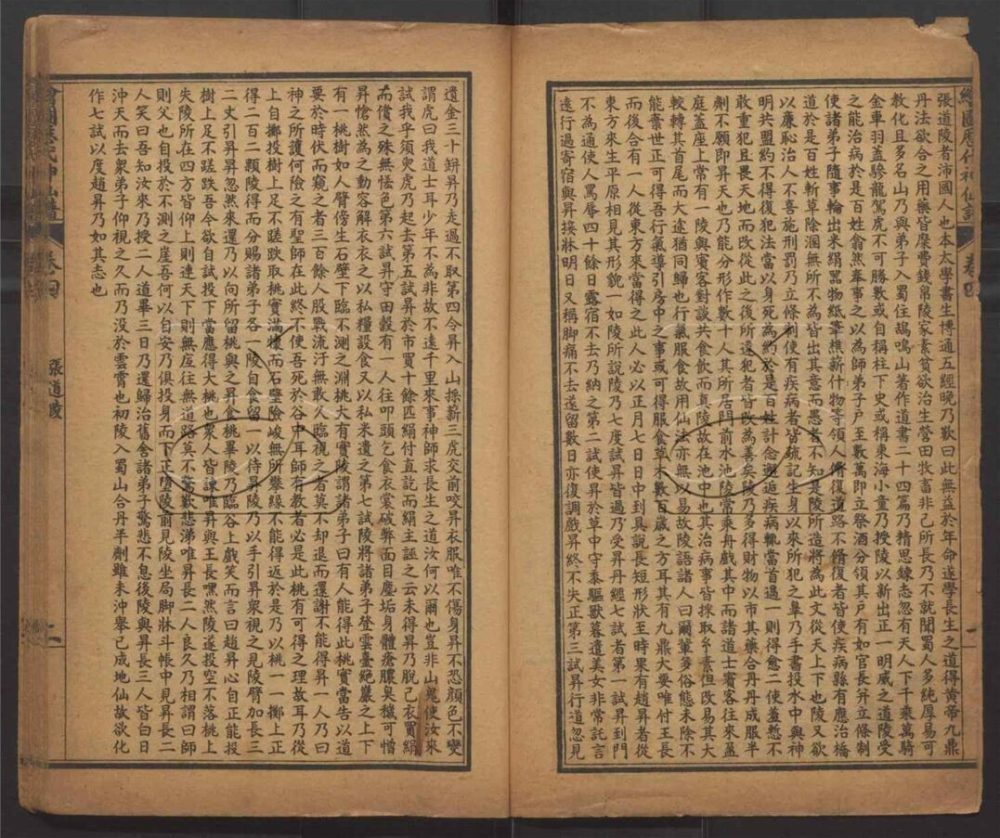 繪圖歷代神仙譜 卷四 一
張道陵者沛國人也本太學書生博通五經晚乃歎曰此無益於年命遂學長生之道得黃帝九鼎
丹法欲合之用藥皆糜費錢帛陵家素貧欲治生營田牧畜非己所長乃不就聞蜀人多純厚易可
教化且多名山乃與弟子入蜀住鵠鳴山著作道書二十四篇乃精思鍊志忽有天人下千乘萬騎
金車羽蓋驂龍駕虎不可勝數或自稱柱下史或稱東海小童乃授陵以新出正一明威之道陵受
之能治病於是百姓翕然奉事之以為師弟子戶至數萬即立祭酒分領其戶有如官長并立條制
使諸弟子隨事輪出米絹器物紙筆樵薪什物等領人脩復道路不脩復者皆使疾病縣有應治橋
道於是百姓斬草除溷無所不為皆出其意而愚者不知是陵所造將為此文從天上下也陵又欲
以廉恥治人不喜施刑罰乃立條制使有疾病者皆疏記生身以來所犯之辠乃手書投水中與神
明共盟約不得復犯法當以身死為約於是百姓計念邂逅疾病輒當首過一則得愈二使羞慙不
敢重犯且畏天地而改從此之後所違犯者皆改為善矣陵乃多得財物以市其藥合丹丹成服半
劑不願即昇天也乃能分形作數十人其所居門前水池陵常乘舟戲其中而諸道士賓客往來盈
庭蓋座上常有一陵與賓客對談共食飲而真陵故在池中也其治病事皆採取玄素但改易其大
較轉其首尾而大途猶同歸也行氣服食故用仙法亦無以易故陵語諸人曰爾輩多俗態未除不
能棄世正可得吾行氣導引房中之事或可得服食草木數百歲之方耳其有九鼎大要唯付王長
而後合有一人從東方來當得之此人必以正月七日日中到具說長短形狀至時果有趙昇者從
東方來生平原相見其形貌一如陵所說陵乃七度試昇皆過乃受昇丹經七試者第一試昇到門
不為通使人罵辱四十餘日露宿不去乃納之第二試使昇於草中守黍驅獸暮遣美女非常託言
遠行過寄宿與昇接牀明日又稱脚痛不去遂留數日亦復調戲昇終不失正第三試昇行道忽見
遺金三十鉼昇乃走過不取第四令昇入山採薪三虎交前咬昇衣服唯不傷身昇不恐顏色不變
謂虎曰我道士耳少年不為非故不遠千里來事神師求長生之道汝何以爾也豈非山鬼使汝來
試我乎須臾虎乃起去第五試昇於市買十餘匹絹付直訖而絹主誣之云未得昇乃脫己衣買絹
而償之殊無恡色第六試昇守田穀有一人往叩頭乞食衣裳破弊面目塵垢身體瘡膿臭穢可憎
昇愴然為之動容解衣衣之以私糧設食又以私米遺之第七試陵將諸弟子登雲臺絕巖之上下
有一桃樹如人臂傍生石壁下臨不測之淵桃大有實陵謂諸弟子曰有人能得此桃實當告以道
要於時伏而窺之者三百餘人股戰流汗無敢久臨視之者莫不却退而還謝不能得昇一人乃曰
神之所護何險之有聖師在此終不使吾死於谷中耳師有教者必是此桃有可得之理故耳乃從
上自擲投樹上足不蹉跌取桃實滿懷而石壁險峻無所攀緣不能得返於是乃以桃一一擲上正
得二百二顆陵得而分賜諸弟子各一陵自食留一以待昇陵乃以手引昇眾視之見陵臂加長三
二丈引昇昇忽然來還乃以向所留桃與之昇食桃畢陵乃臨谷上戲笑而言曰趙昇心自正能投
樹上足不蹉跌吾今欲自試投下當應得大桃也眾人皆諫唯昇與王長嘿然陵遂投空不落桃上
失陵所在四方皆仰上則連天下則無底往無道路莫不驚歎悲涕唯昇長二人良久乃相謂曰師
則父也自投於不測之崖吾何以自安乃俱投身而下正墮陵前見陵坐局脚牀斗帳中見昇長二
人笑曰吾知汝來乃授二人道畢三日乃還歸治舊舍諸弟子驚悲不息後陵與昇長三人皆白日
沖天而去眾弟子仰視之久而乃沒於雲霄也初陵入蜀山合丹半劑雖未沖舉已成地仙故欲化
作七試以度趙昇乃如其志也
卷四 張道陵 二